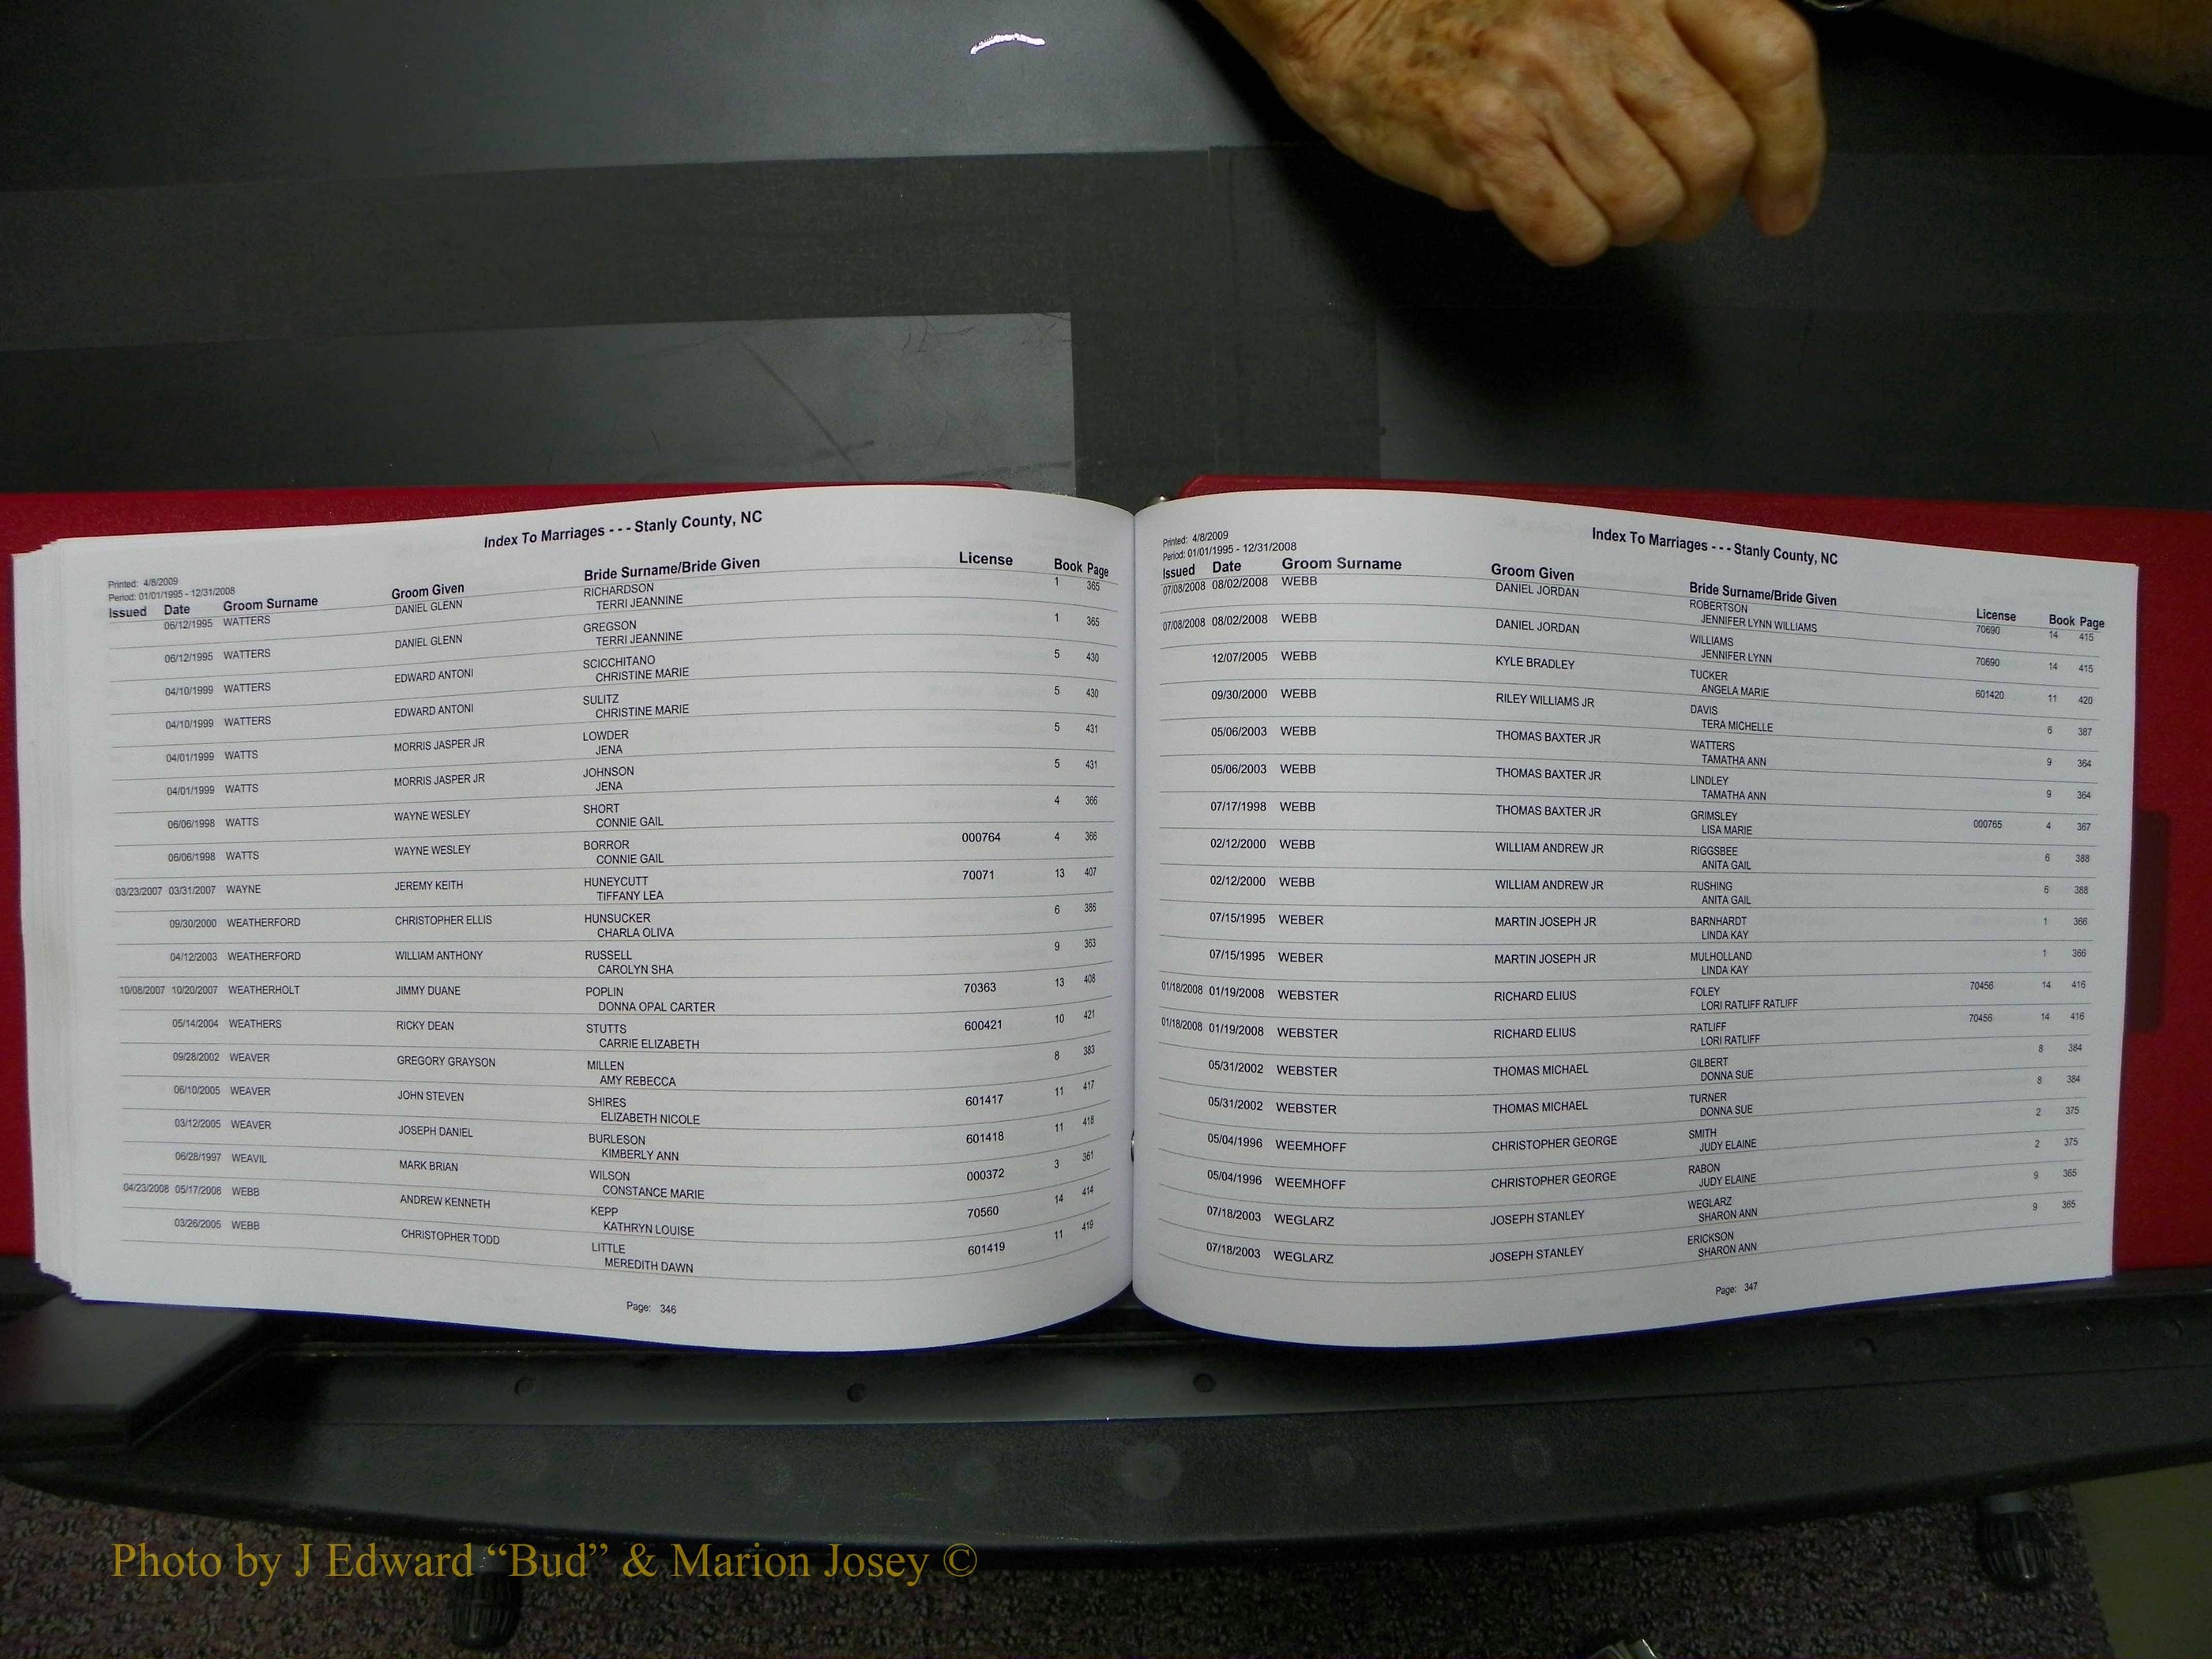 Index To Marriages - - - Stanly County, NC
Printed: 4/8/2009
Period: 01/01/1995 - 12/31/2008
Issued Date Groom Surname Groom Given Bride Surname/Bride Given License Book Page
06/12/1995 WATTERS DANIEL GLENN RICHARDSON 1 365
TERRI JEANNINE
06/12/1995 WATTERS DANIEL GLENN GREGSON 1 365
TERRI JEANNINE
04/10/1999 WATTERS EDWARD ANTONI SCICCHITANO 5 430
CHRISTINE MARIE
04/10/1999 WATTERS EDWARD ANTONI SULITZ 5 430
CHRISTINE MARIE
04/01/1999 WATTS MORRIS JASPER JR LOWDER 5 431
JENA
04/01/1999 WATTS MORRIS JASPER JR JOHNSON 5 431
JENA
06/06/1998 WATTS WAYNE WESLEY SHORT 4 366
CONNIE GAIL
06/06/1998 WATTS WAYNE WESLEY BORROR 000764 4 366
CONNIE GAIL
03/23/2007 03/31/2007 WAYNE JEREMY KEITH HUNEYCUTT 70071 13 407
TIFFANY LEA
09/30/2000 WEATHERFORD CHRISTOPHER ELLIS HUNSUCKER 6 386
CHARLA OLIVA
04/12/2003 WEATHERFORD WILLIAM ANTHONY RUSSELL 9 363
CAROLYN SHA
10/08/2007 10/20/2007 WEATHERHOLT JIMMY DUANE POPLIN 70363 13 408
DONNA OPAL CARTER
05/14/2004 WEATHERS RICKY DEAN STUTTS 600421 10 421
CARRIE ELIZABETH
09/28/2002 WEAVER GREGORY GRAYSON MILLEN 8 383
AMY REBECCA
06/10/2005 WEAVER JOHN STEVEN SHIRES 601417 11 417
ELIZABETH NICOLE
03/12/2005 WEAVER JOSEPH DANIEL BURLESON 601418 11 418
KIMBERLY ANN
06/28/1997 WEAVIL MARK BRIAN WILSON 000372 3 361
CONSTANCE MARIE
04/23/2008 05/17/2008 WEBB ANDREW KENNETH KEPP 70560 14 414
KATHRYN LOUISE
03/26/2005 WEBB CHRISTOPHER TODD LITTLE 601419 11 419
MEREDITH DAWN
Page: 346
Index To Marriages - - - Stanly County, NC
Printed: 4/8/2009
Period: 01/01/1995 - 12/31/2008
Issued Date Groom Surname Groom Given Bride Surname/Bride Given License Book Page
07/08/2008 08/02/2008 WEBB DANIEL JORDAN ROBERTSON 70690 14 415
JENNIFER LYNN WILLIAMS
07/08/2008 08/02/2008 WEBB DANIEL JORDAN WILLIAMS 70690 14 415
JENNIFER LYNN
12/07/2005 WEBB KYLE BRADLEY TUCKER 601420 11 420
ANGELA MARIE
09/30/2000 WEBB RILEY WILLIAMS JR DAVIS 6 387
TERA MICHELLE
05/06/2003 WEBB THOMAS BAXTER JR WATTERS 9 364
TAMATHA ANN
05/06/2003 WEBB THOMAS BAXTER JR LINDLEY 9 364
TAMATHA ANN
07/17/1998 WEBB THOMAS BAXTER JR GRIMSLEY 000765 4 367
LISA MARIE
02/12/2000 WEBB WILLIAM ANDREW JR RIGGSBEE 6 388
ANITA GAIL
02/12/2000 WEBB WILLIAM ANDREW JR RUSHING 6 388
ANITA GAIL
07/15/1995 WEBER MARTIN JOSEPH JR BARNHARDT 1 366
LINDA KAY
07/15/1995 WEBER MARTIN JOSEPH JR MULHOLLAND 1 366
LINDA KAY
01/18/2008 01/19/2008 WEBSTER RICHARD ELIUS FOLEY 70456 14 416
LORI RATLIFF RATLIFF
01/18/2008 01/19/2008 WEBSTER RICHARD ELIUS RATLIFF 70456 14 416
LORI RATLIFF
05/31/2002 WEBSTER THOMAS MICHAEL GILBERT 8 384
DONNA SUE
05/31/2002 WEBSTER THOMAS MICHAEL TURNER 8 384
DONNA SUE
05/04/1996 WEEMHOFF CHRISTOPHER GEORGE SMITH 2 375
JUDY ELAINE
05/04/1996 WEEMHOFF CHRISTOPHER GEORGE RABON 2 375
JUDY ELAINE
07/18/2003 WEGLARZ JOSEPH STANLEY WEGLARZ 9 365
SHARON ANN
07/18/2003 WEGLARZ JOSEPH STANLEY ERICKSON 9 365
SHARON ANN
Page: 347
Photo by J Edward “Bud” & Marion Josey ©